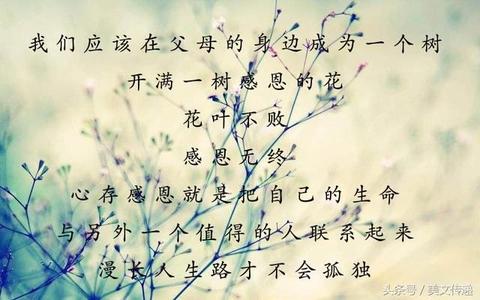 我们应该在父母的身边成为一个树
开满一树感恩的花
花叶不败
感恩无终
心存感恩就是把自己的生命
与另外一个值得的人联系起来
漫长人生路才不会孤独
头条号/美文传递